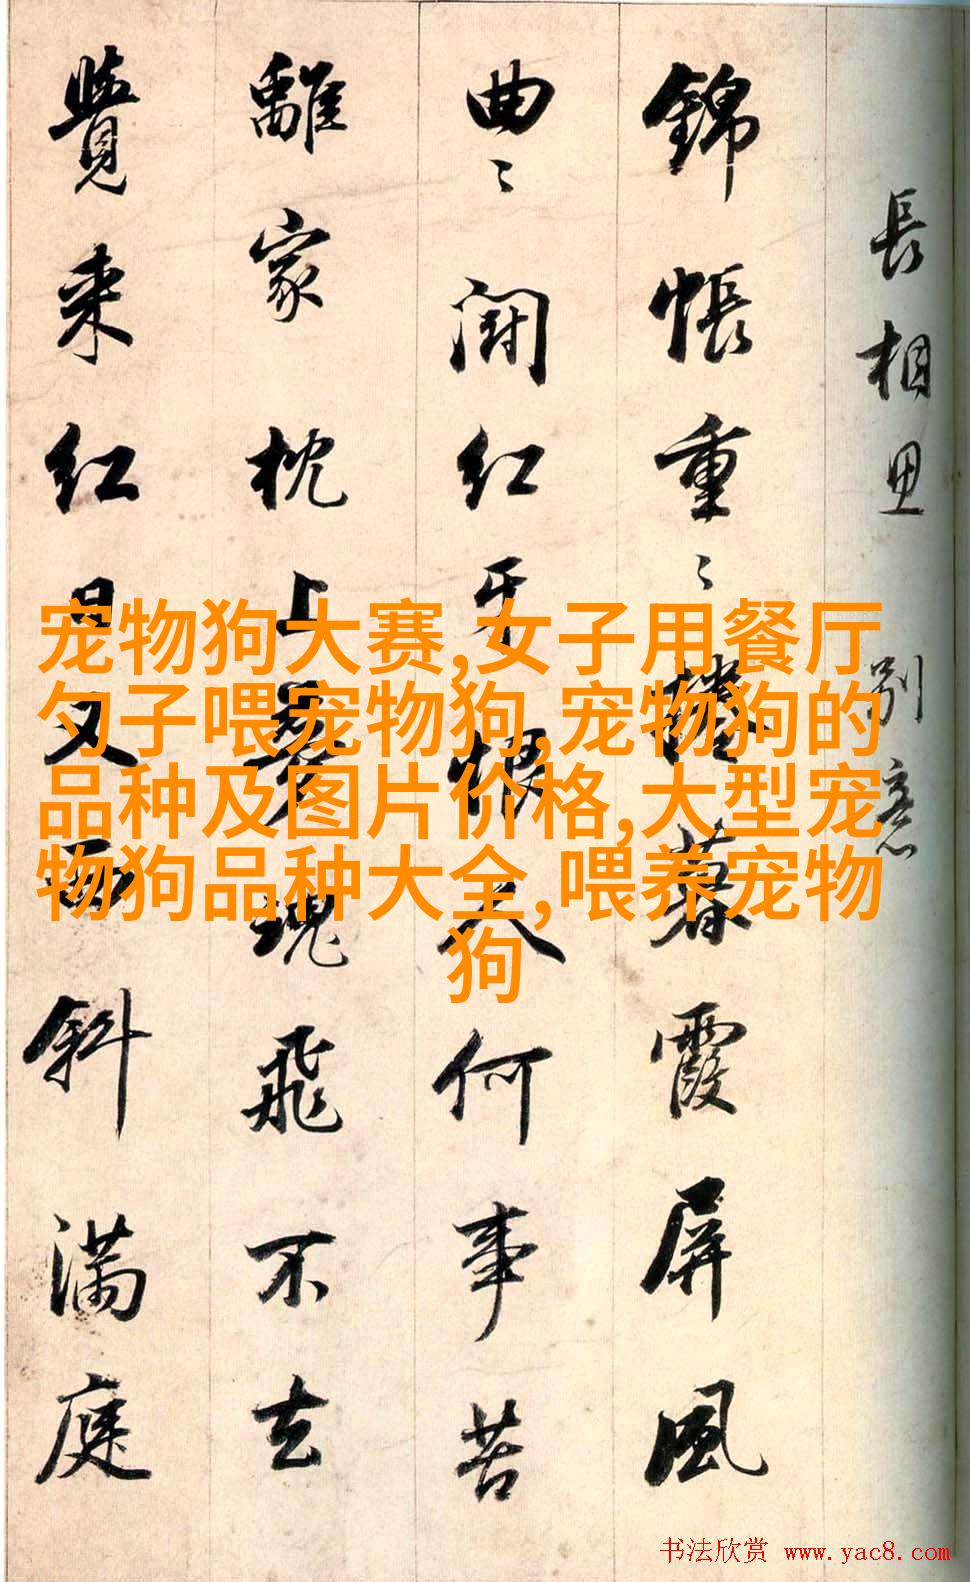 長相思 別意
錦帳重〻捲暮霞屏風
曲〻鬪紅牙恨人何事苦
離家枕上夢魂飛不去
覺來紅日又西斜滿庭
宠物狗大赛,女子用餐厅
勺子喂宠物狗,宠物狗的
品种及图片价格,大型宠
物狗品种大全,喂养宠物
狗
书法欣赏 www.yac8.com